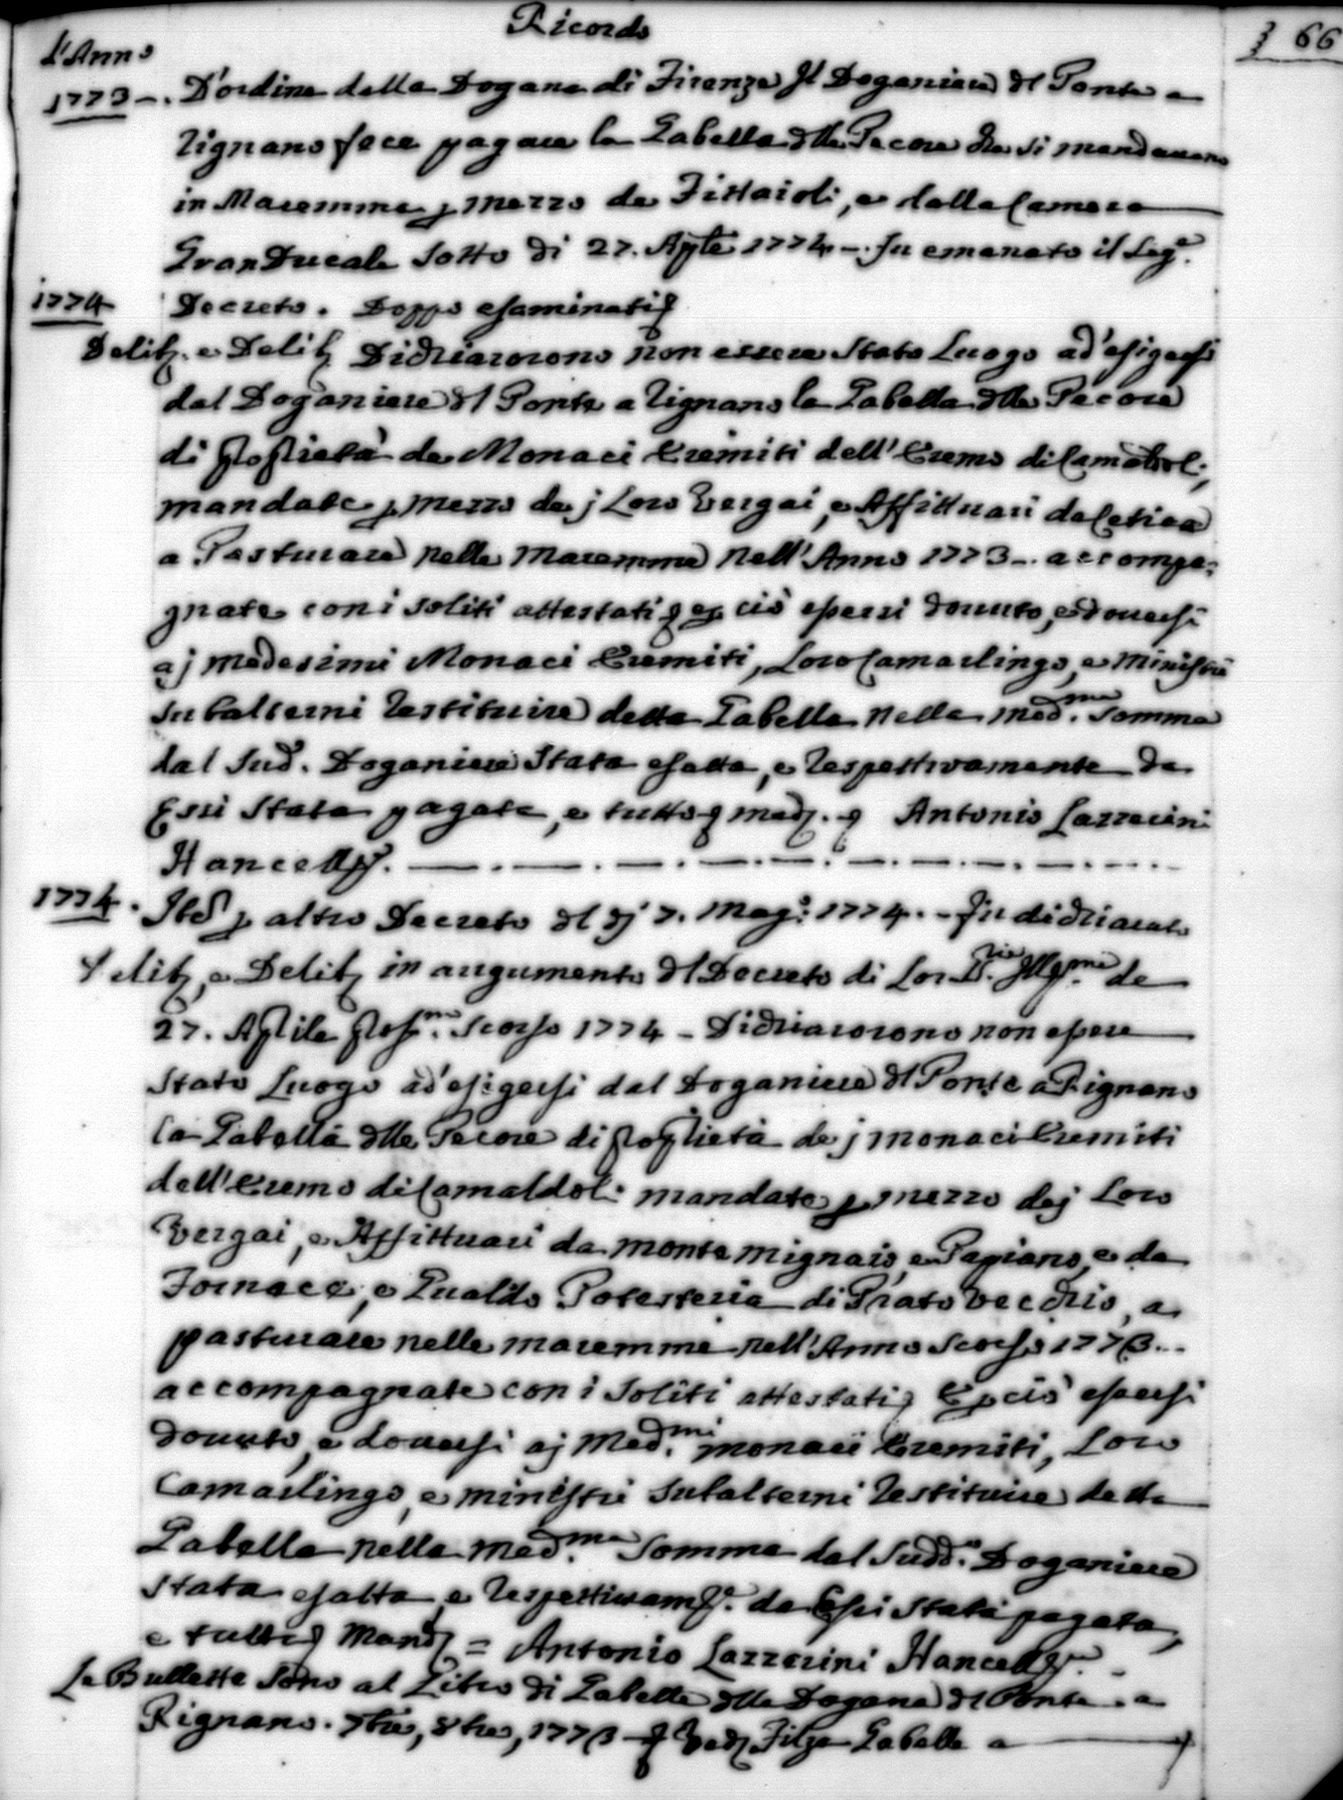 Ricordo
66
L'Anno
1773 -. D'ordine della Dogana di Firenze Il Doganiere dl Ponte a
Rignano fece pagare la Gabella dlle Pecore che si mandauano
in Maremma p mezzo de Fittaioli, e dalla Camera
GranDucale sotto di 27. Aple 1774 -. fu emanato il seg.e
1774 Decreto. Doppo esaminati
Delib. e Delib. Dichiararono non essere stato Luogo ad'esigersi
dal Doganiere dl Ponte a Rignano la Gabella dlle Pecore
di proprietà de Monaci Eremiti dell'Eremo di Camaldoli,
mandate p mezzo dej Loro Vergai, e Affittuari da Cetica
a Pasturare nelle Maremme nell'Anno 1773 -. accompa:
gnate con i soliti attestati e p ciò essersi douuto, e douersi
aj Medesimi Monaci Eremiti, Loro Camarlingo, e Ministri
subalterni restituire detta Gabella nella med.ma somma
dal sud.o Doganiere stata esatta, e respettivamente da
Essi stata pagata, e tutto med. Antonio Lazzerini
1774. p altro Decreto dl dj 7. Mag.o 1774. - Fu dichiarato
Delib, e Delib in augumento dl Decreto di Lor de
27. Aprile pros.mo scorso 1774 - Dichiararono non essere
stato Luogo ad'esigersi dal Doganiere dl Ponte a Rignano
la Gabella dlle Pecore di proprietà dej monaci Eremiti
dell'Eremo di Camaldoli mandate p mezzo dej Loro
Vergai, e Affittuari da monte mignaio, e Papiano, e da
Fornace, e Gualdo Potesteria di Prato Vecchio, a
pasturare nelle maremme nell'Anno scorso 1773 -.
accompagnate con i soliti attestati E p ciò essersi
douuto, e douersi aj Med.mi monaci Eremiti, Loro
Camarlingo, e ministri subalterni restituire detta
Gabella nella med.ma somma dal sudd.o Doganiere
stata esatta, e respettiuam.e da Essi stata pagata,
e tutto = Antonio Lazzerini
Le Bullette sono al Libro di Gabelle dlla Dogana dl Ponte a
Rignano. 7bre, 8bre, 1773 Filza Gabelle a